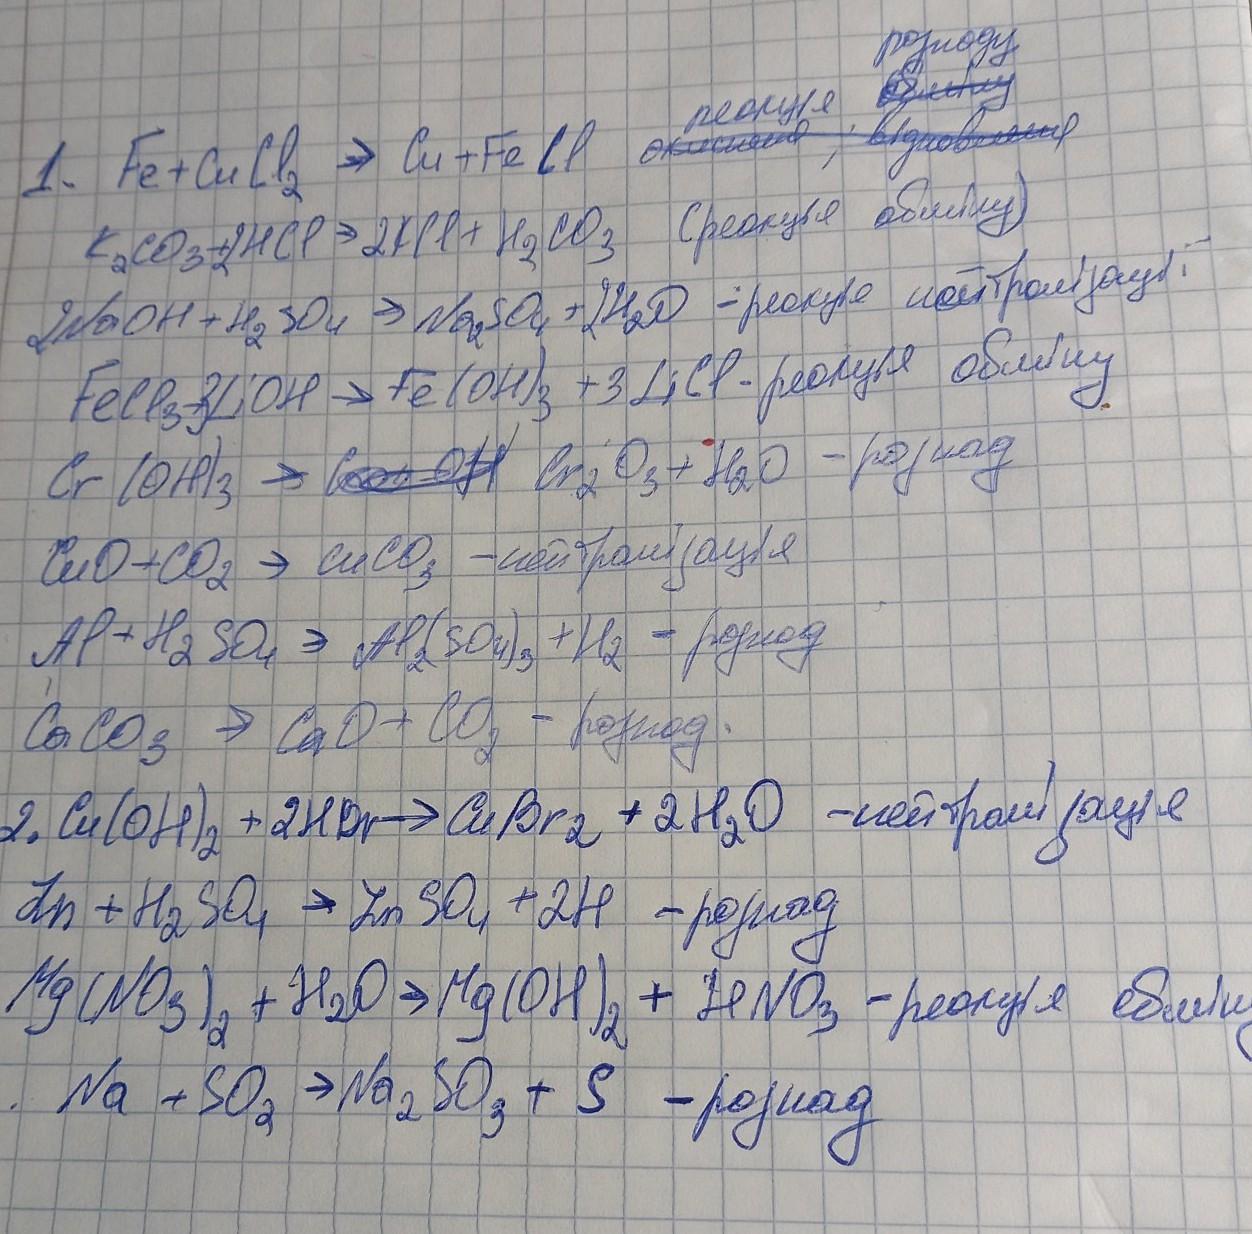 розпаду
реакція
1. Fe + CuCl₂ → Cu + FeCl
K₂CO₃ + 2HCl → 2KCl + H₂CO₃ (реакція обміну)
2NaOH + H₂SO₄ → Na₂SO₄ + 2H₂O - реакція нейтралізації
FeCl₃ + 3LiOH → Fe(OH)₃ + 3LiCl - реакція обміну
Cr(OH)₃ → Cr₂O₃ + H₂O - розпад
CuO + CO₂ → CuCO₃ - нейтралізація
Al + H₂SO₄ → Al₂(SO₄)₃ + H₂ - розпад
CaCO₃ → CaO + CO₂ - розпад.
2. Cu(OH)₂ + 2HBr → CuBr₂ + 2H₂O - нейтралізація
Zn + H₂SO₄ → ZnSO₄ + 2H - розпад
Mg(NO₃)₂ + H₂O → Mg(OH)₂ + HNO₃ - реакція обміну
Na + SO₂ → Na₂SO₃ + S - розпад